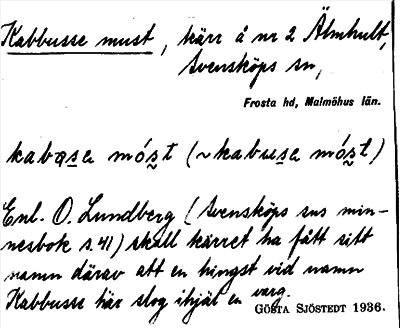 Kabbusse must, kärr å nr 2 Älmhult,
Svensköps sn,
Frosta hd, Malmöhus län.
kabɑsa móst (~kabusa móst)
Enl. O. Lundberg (Svensköps sns min-
nesbok s. 41) skall kärret ha fått sitt
namn därav att en hingst vid namn
Kabbusse här slog ihjäl en varg.
GÖSTA SJÖSTEDT 1936.